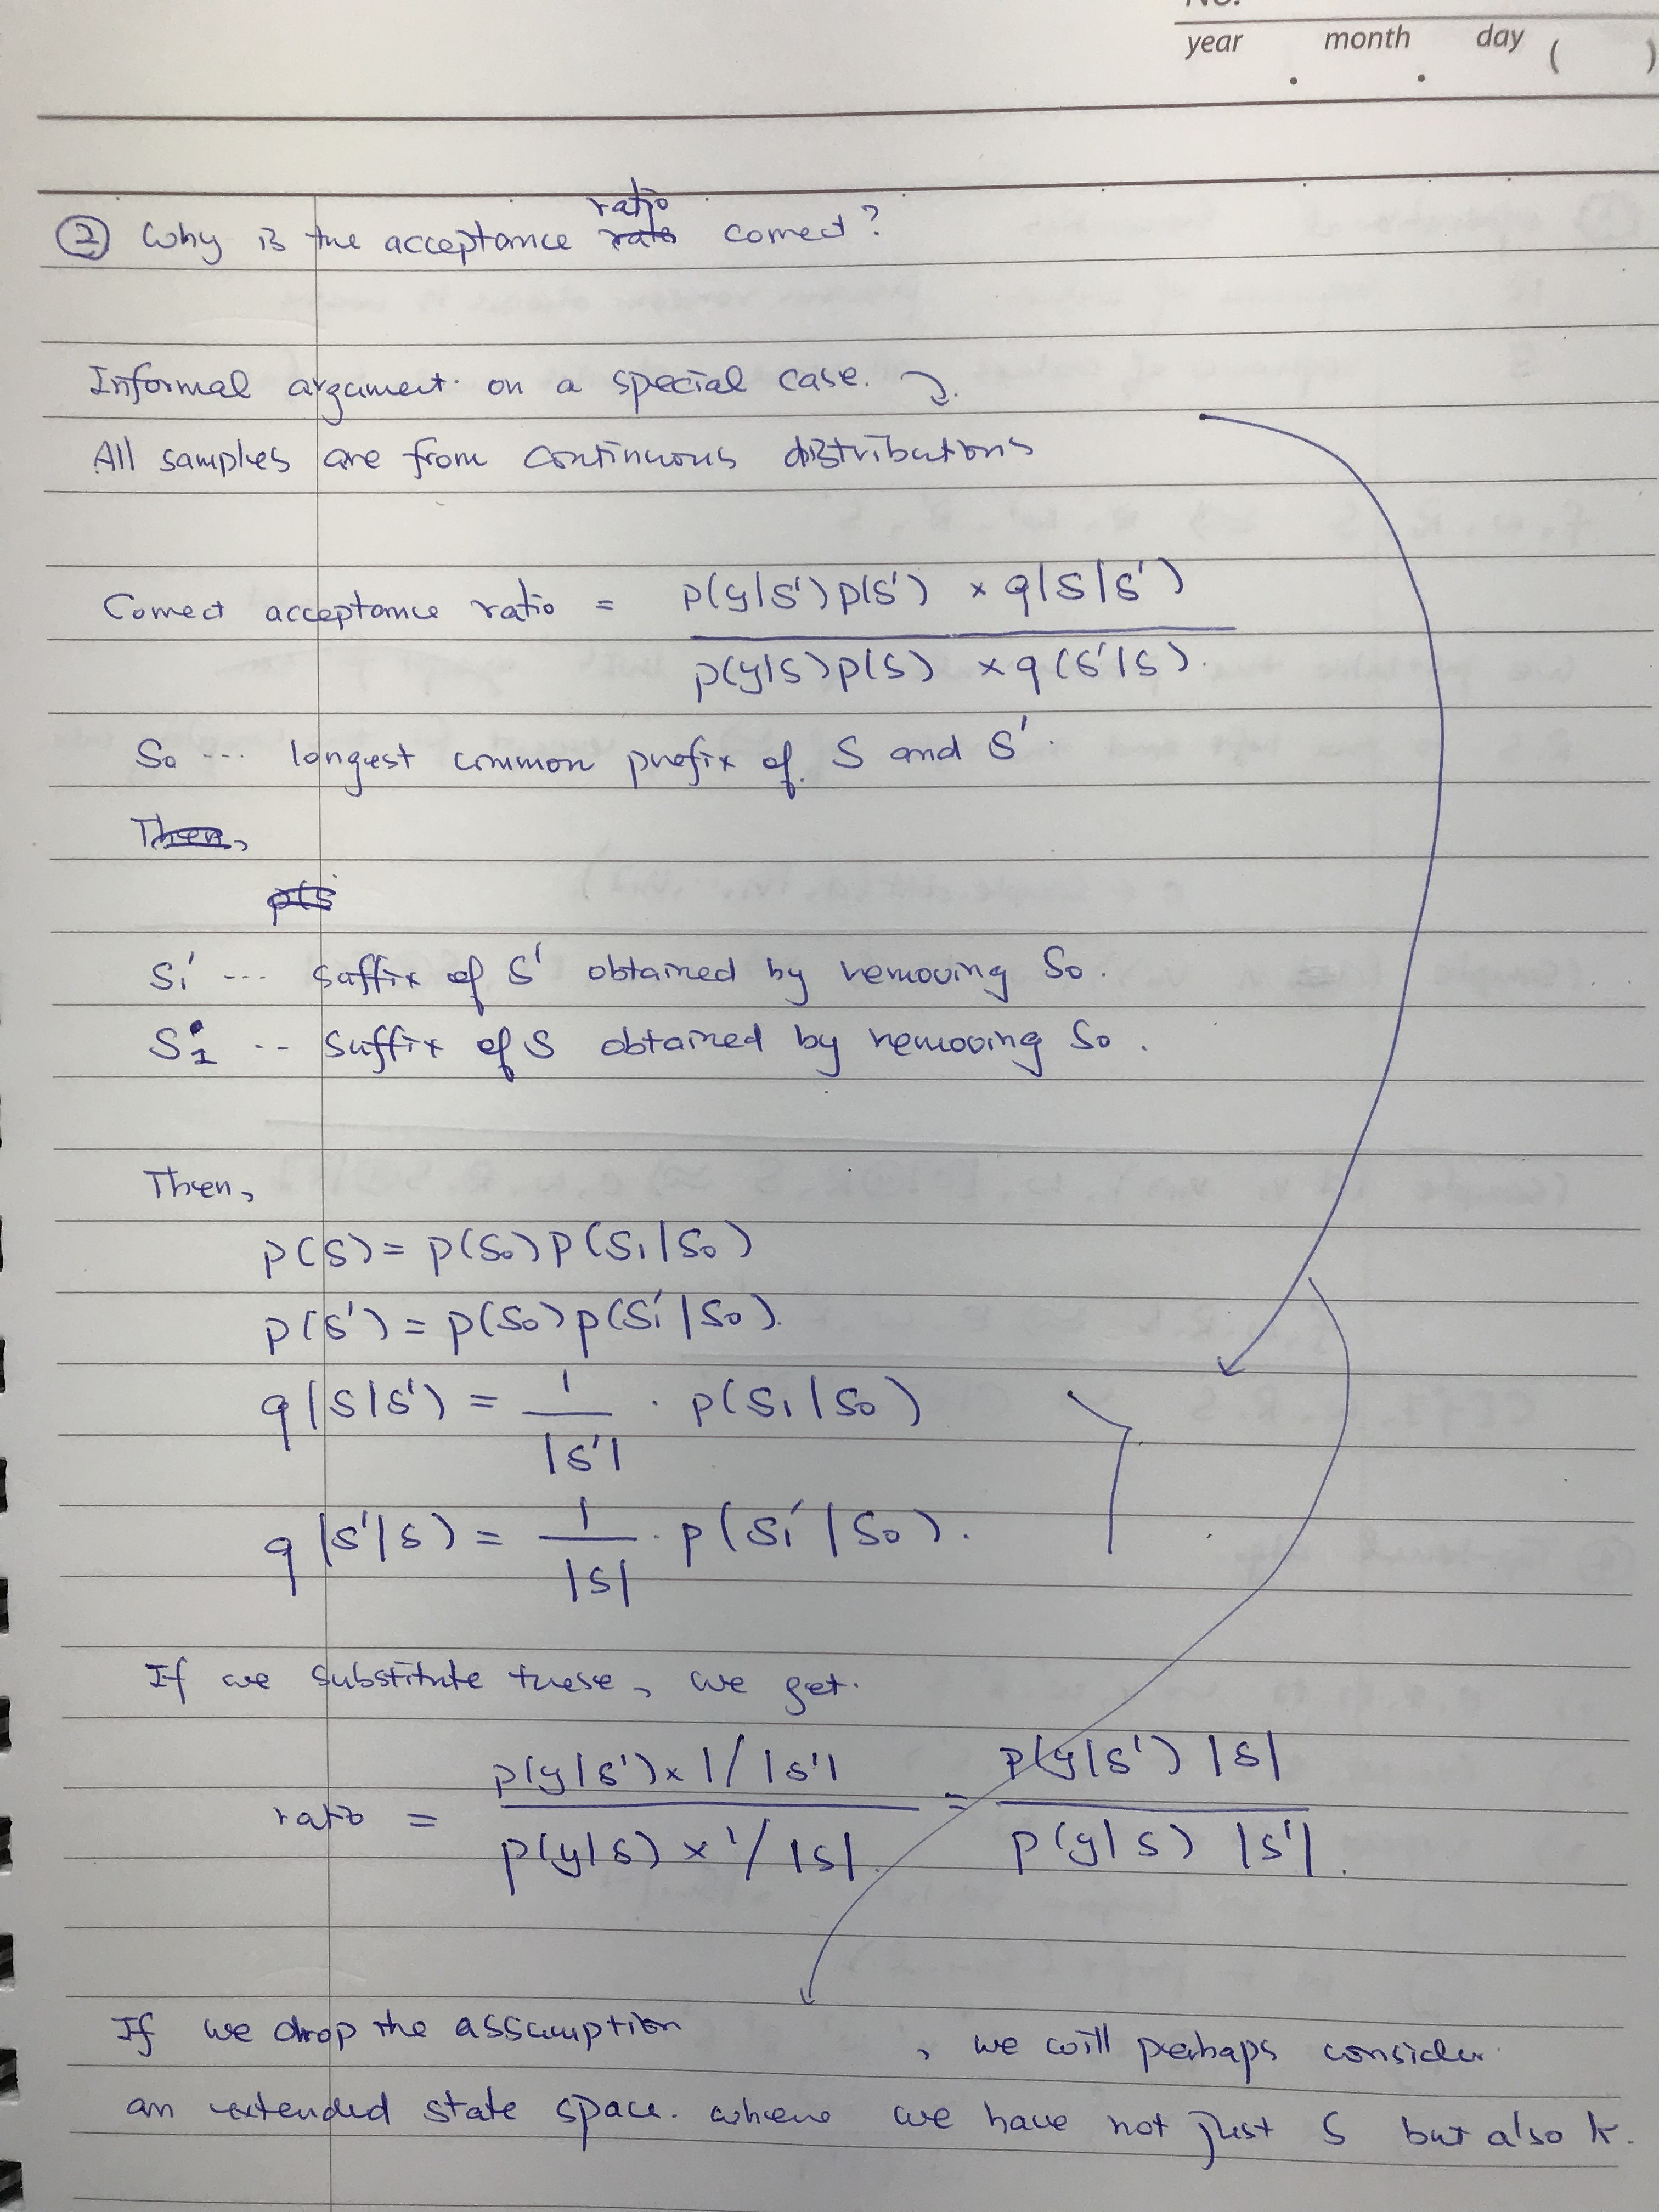 No.
year . month . day ( )
② Why is the acceptance ratio correct?
Informal argument on a special case.
All samples are from continuous distributions
Correct acceptance ratio = p(y|S')p(S') × q(S|S') / p(y|S)p(S) × q(S'|S).
S₀ ... longest common prefix of S and S'.
Then,
p(S
S₁' ... suffix of S' obtained by removing S₀.
S₁ .. suffix of S obtained by removing S₀.
Then,
p(S) = p(S₀)p(S₁|S₀)
p(S') = p(S₀)p(S₁'|S₀).
q(S|S') = 1/|S'| · p(S₁|S₀)
q(S'|S) = 1/|S| · p(S₁'|S₀).
If we substitute these, we get.
ratio = p(y|S')×1/|S'| / p(y|S)×1/|S| = p(y|S')|S| / p(y|S)|S'|.
If we drop the assumption , we will perhaps consider
an extended state space. where we have not just S but also k.